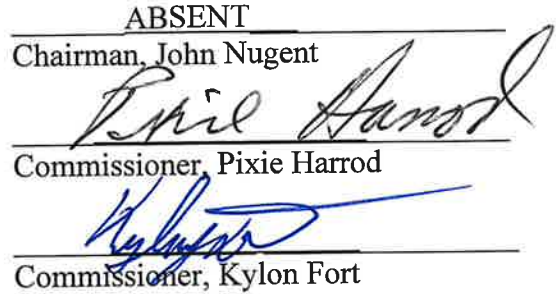 ABSENT
Chairman, John Nugent
Pixie Harrod
Commissioner, Pixie Harrod
Commissioner, Kylon Fort